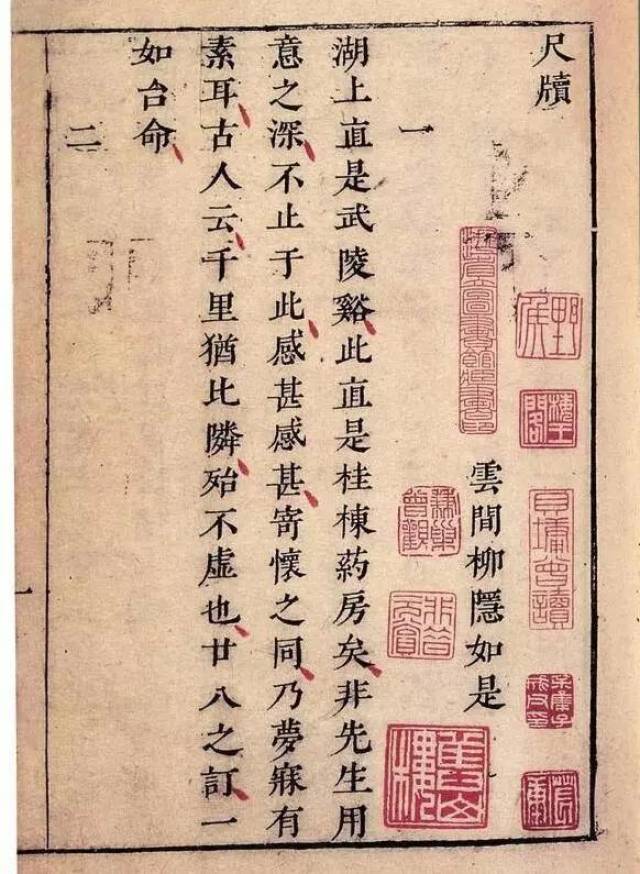 尺牘
野侯
梅王閣
貝墉曾讀
雲間柳隱如是
舊山樓
一
湖上直是武陵谿此直是桂棟葯房矣非先生用
意之深不止于此感甚感甚寄懷之同乃夢寐有
素耳古人云千里猶比隣殆不虛也廿八之訂一
如台命
二